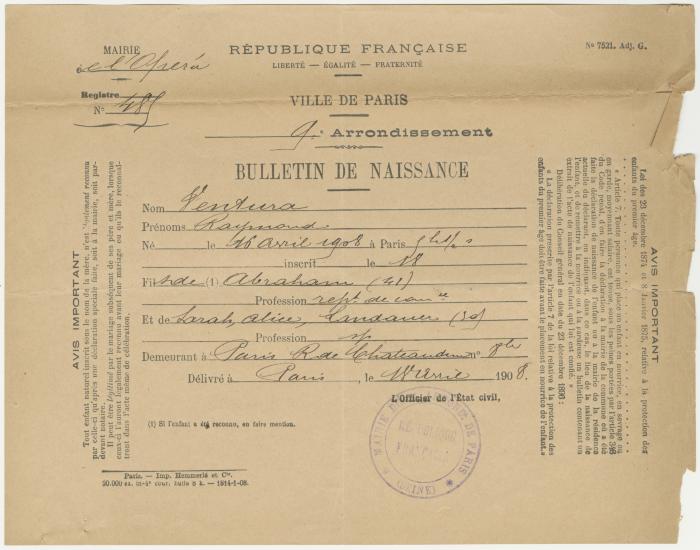 MAIRIE
de l'Opéra
Registre
N° 485
RÉPUBLIQUE FRANÇAISE
LIBERTÉ — ÉGALITÉ — FRATERNITÉ
N° 7521. Adj. G.
VILLE DE PARIS
9e Arrondissement
BULLETIN DE NAISSANCE
Nom Ventura
Prénoms Raymond
Né le 16 avril 1908 à Paris
inscrit le 18
Fils de (1) Abraham (41)
Profession rept de comce
Et de Sarah, Alice, Landauer (29)
Profession sp
Demeurant à Paris R. de Chateaudun n° 8bis
Délivré à Paris, le 18 avril 1908.
L'Officier de l'État civil,
(1) Si l'enfant a été reconnu, en faire mention.
MAIRIE DE PARIS
RÉPUBLIQUE
FRANÇAISE
(SEINE)
Paris. — Imp. Hemmerlé et Cie.
20.000 ex. in-4° cour. bulle 8 k. — 1814-1-08.
AVIS IMPORTANT
Tout enfant naturel inscrit sous le nom de la mère, n'est légalement reconnu
par celle-ci qu'après une déclaration spéciale faite, soit à la mairie, soit par-
devant notaire.
Il peut être légitimé par le mariage subséquent de ses père et mère, lorsque
ceux-ci l'auront légalement reconnu avant leur mariage ou qu'ils le reconnaî-
tront dans l'acte même de célébration.
AVIS IMPORTANT
Loi des 23 décembre 1874 et 8 Janvier 1875, relative à la protection des
enfants du premier âge.
« Article 7. Toute personne qui place un enfant en nourrice, en sevrage ou
en garde, moyennant salaire, est tenue, sous les peines portées par l'article 346
du Code pénal, d'en faire la déclaration à la mairie de la commune où a été
faite la déclaration de naissance de l'enfant ou à la mairie de la résidence
actuelle du déclarant, en indiquant, dans ce cas, le lieu de la naissance de
l'enfant, et de remettre à la nourrice ou à la gardeuse un bulletin contenant un
extrait de l'acte de naissance de l'enfant qui lui est confié. »
Délibération du Conseil général en date du 23 décembre 1896:
« La déclaration prescrite par l'article 7 de la loi relative à la protection des
enfants du premier âge doit être faite avant le placement en nourrice de l'enfant. »